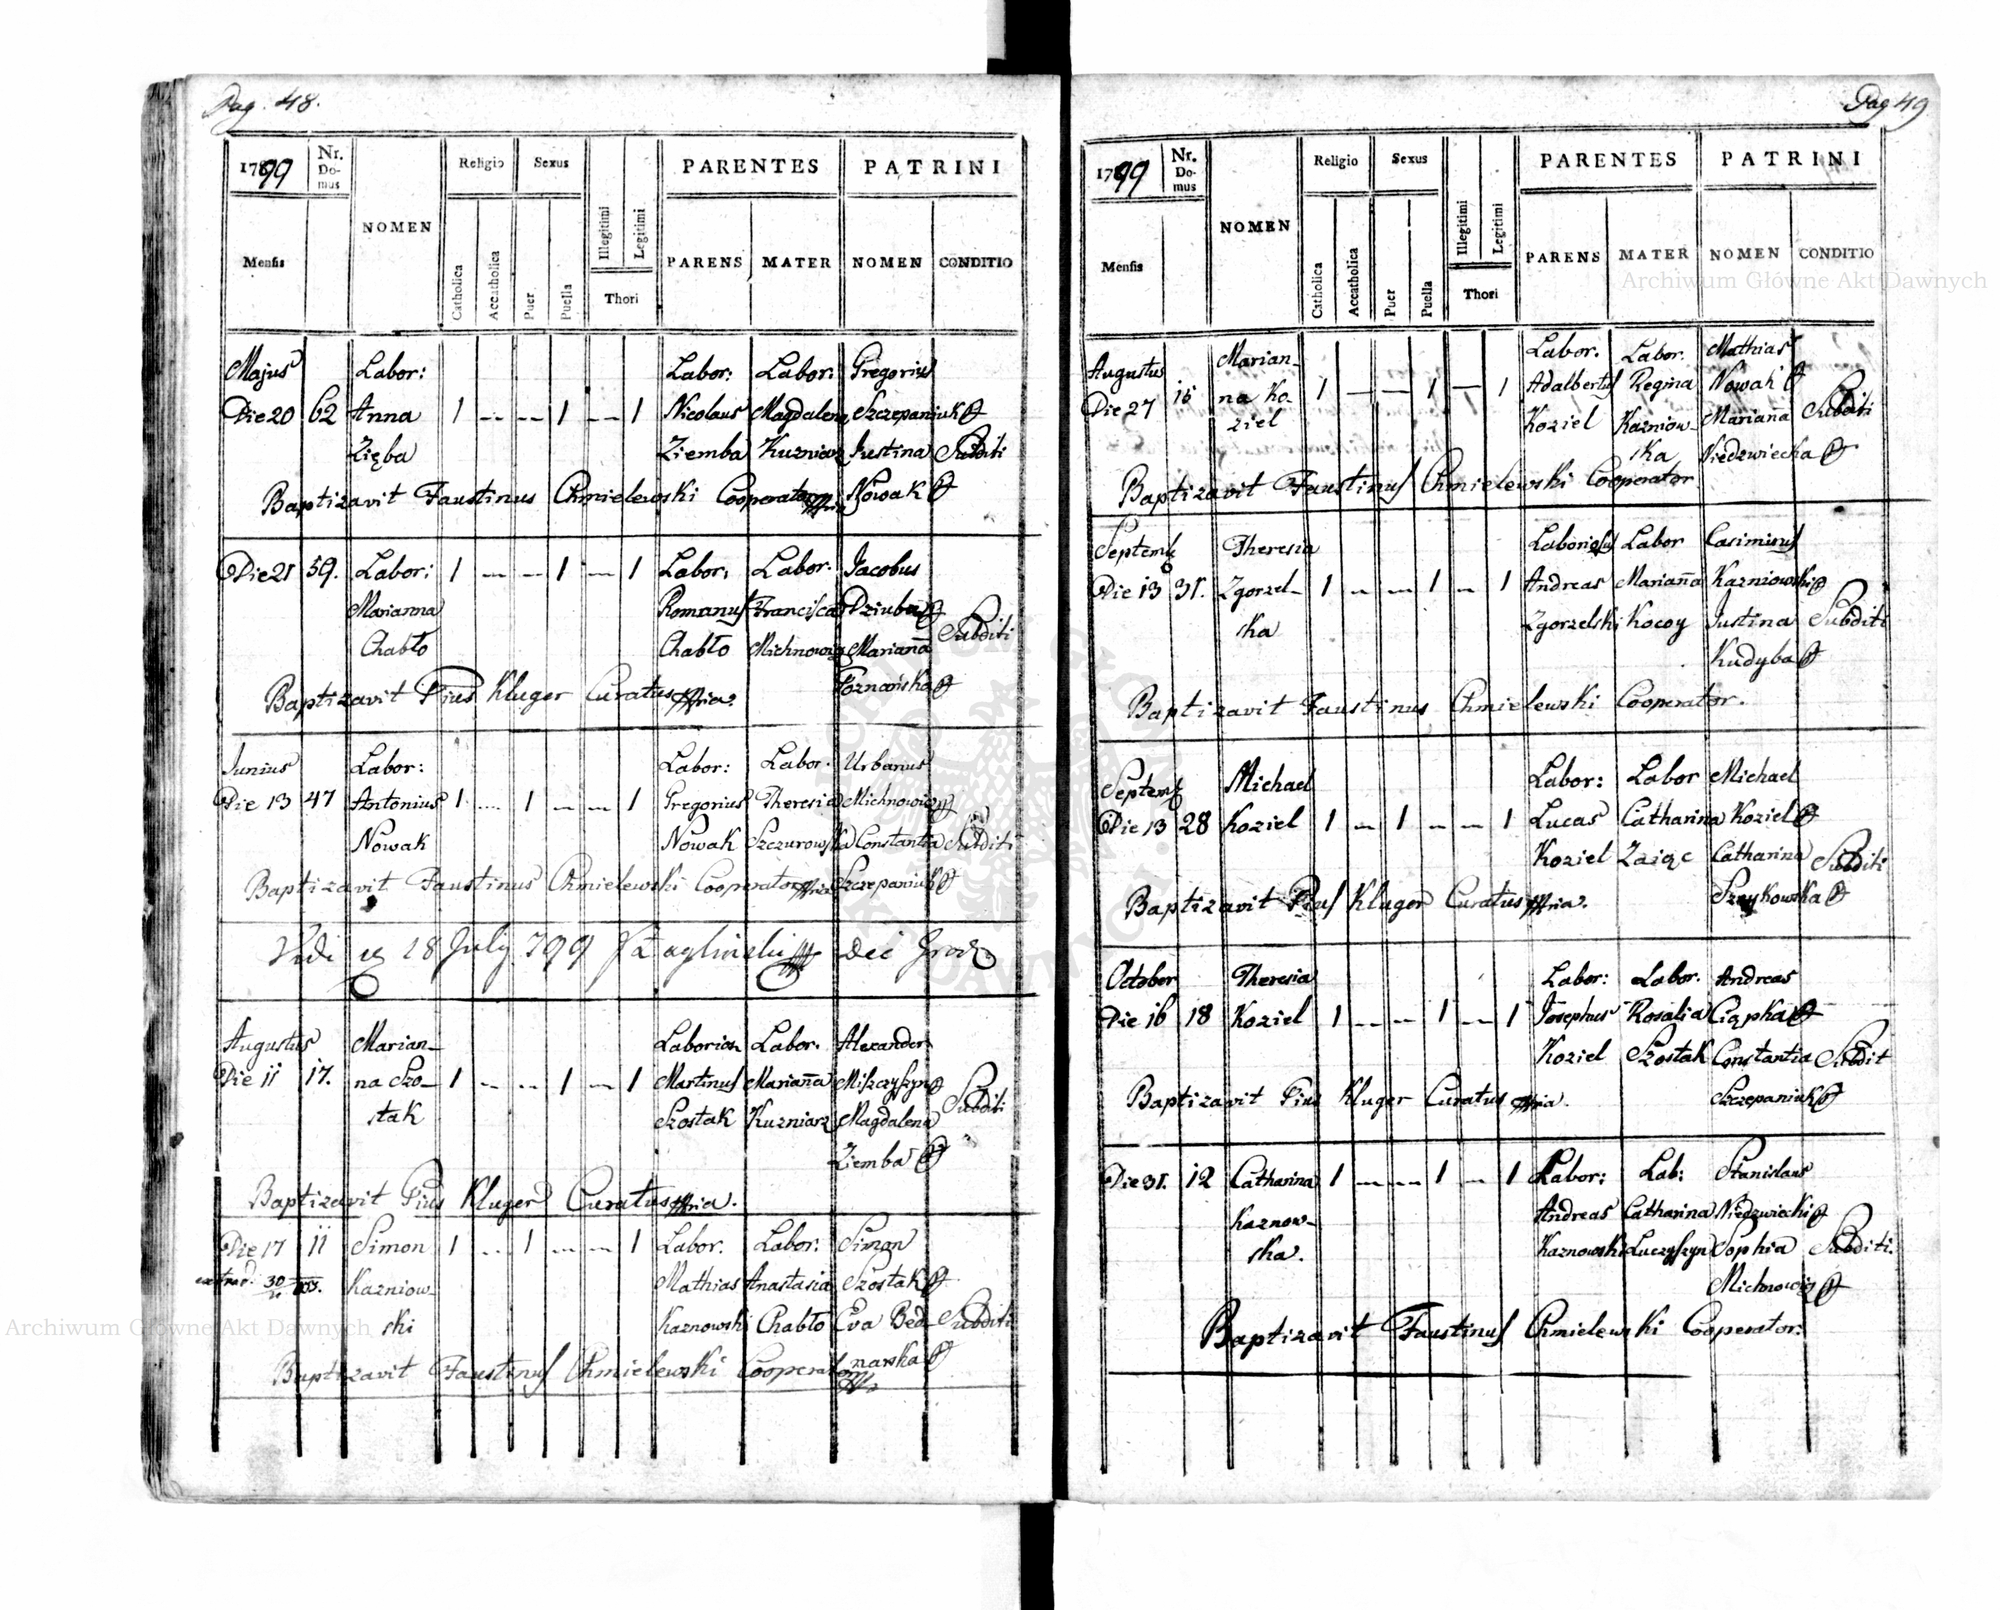 Pag. 48.
1799 Nr. Domus NOMEN Religio Sexus PARENTES PATRINI
Mensis Catholica Accatholica Puer Puella Illegitimi Legitimi Thori PARENS MATER NOMEN CONDITIO
Majus Labor: Labor: Labor: Gregorius
Die 20 62 Anna 1 — — 1 — 1 Nicolaus Magdalena Szczepaniuk
Zięba Ziemba Kuzniarz Justina Subditi
Baptizavit Faustinus Chmielewski Cooperator Nowak
Die 21 59. Labor: 1 — — 1 — 1 Labor: Labor: Jacobus
Marianna Romanus Francisca Dziuba
Chabło Chabło Michnowicz Marianna Subditi
Baptizavit Pius Kluger Curatus mpria. Poznańska
Junius Labor: Labor: Labor: Urbanus
Die 13 47 Antonius 1 — 1 — — 1 Gregorius Theresia Michnowicz
Nowak Nowak Szczurowska Constantia Subditi
Baptizavit Faustinus Chmielewski Cooperator mpria Szczepaniuk
Vidi 18 July 799
Augustus Marian- Laborios Labor. Alexander
Die 11 17. na Szo- 1 — — 1 — 1 Martinus Marianna Miszczyszyn
stak Szostak Kuzniarz Magdalena Subditi
Ziemba
Baptizavit Pius Kluger Curatus mpria.
Die 17 11 Simon 1 — 1 — — 1 Labor. Labor: Simon
extrad. Kazniow- Mathias Anastasia Szostak
ski Kaznowski Chabło Eva Bed- Subditi
Baptizavit Faustinus Chmielewski Cooperator narska
Pag 49
1799 Nr. Domus NOMEN Religio Sexus PARENTES PATRINI
Mensis Catholica Accatholica Puer Puella Illegitimi Legitimi Thori PARENS MATER NOMEN CONDITIO
Augustus Marian- Labor. Labor. Mathias
Die 27 16 na Ko- 1 — — 1 — 1 Adalbertus Regina Nowak
ziel Koziel Kazniow- Mariana Subditi
ska Niedzwiecka
Baptizavit Faustinus Chmielewski Cooperator
Septemb Theresia Laboriosus Labor Casimirus
Die 13 31. Zgorzel- 1 — — 1 — 1 Andreas Marianna Kazniowski
ska Zgorzelski Kocoy Justina Subditi
Kudyba
Baptizavit Faustinus Chmielewski Cooperator.
Septemb Michael Labor: Labor Michael
Die 13 28 Koziel 1 — 1 — — 1 Lucas Catharina Koziel
Koziel Zaiąc Catharina Subditi
Baptizavit Pius Kluger Curatus mpria. Szaykowska
October Theresia Labor: Labor. Andreas
Die 16 18 Koziel 1 — — 1 — 1 Josephus Rosalia Ciąpka
Koziel Szostak Constantia Subdit
Baptizavit Pius Kluger Curatus mpria. Szczepaniuk
Die 31. 12 Catharina 1 — — 1 — 1 Labor: Lab: Stanislaus
Kaznow- Andreas Catharina Niedzwiecki
ska. Kaznowski Luczyszyn Sophia Subditi.
Michnowicz
Baptizavit Faustinus Chmielewski Cooperator.
Archiwum Główne Akt Dawnych
Archiwum Główne Akt Dawnych